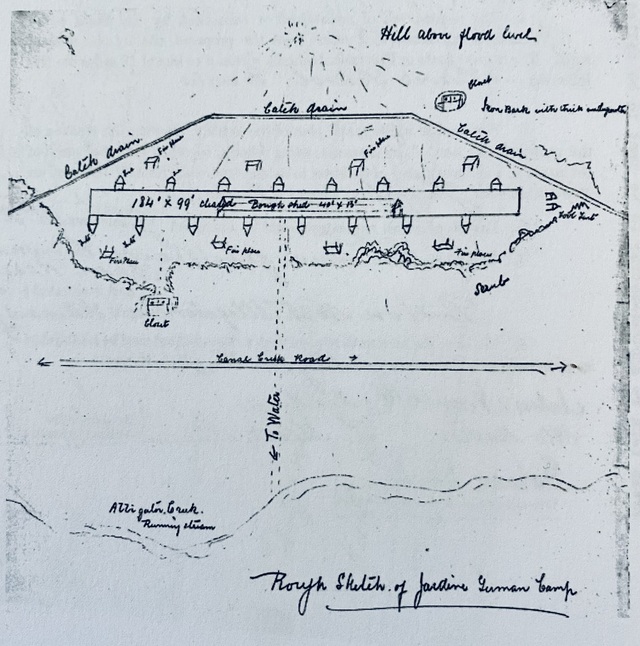 Hill above flood level.
Closet
Iron Bark with thick undergrowth
Catch drain
Catch drain
Catch drain
Fire Place
Fire Place
Tent
Tent
184' x 99' cleared
Bough shed 40' x 15'
Tool Tent
Tent
Tent
Fire Place
Fire Place
Fire Place
Scrub
Closet
Canal Creek Road
To Water
Alligator Creek.
Running stream
Rough Sketch of Jardine Guman Camp